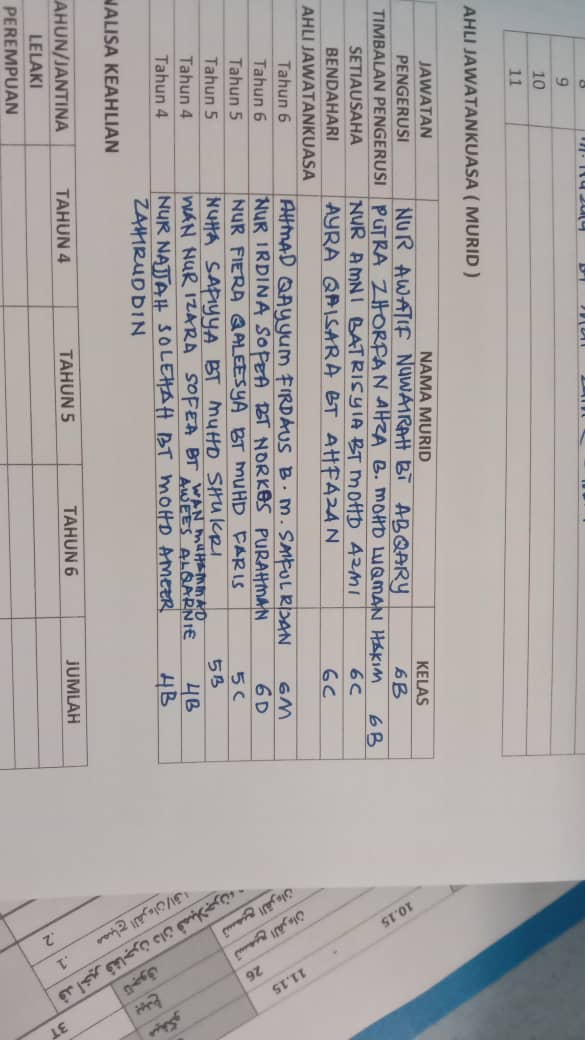 9
10
11
AHLI JAWATANKUASA ( MURID )
JAWATAN NAMA MURID KELAS
PENGERUSI NUR AWATIF NUWAIRAH BT ABQARY 6B
TIMBALAN PENGERUSI PUTRA ZHORFAN AHZA B. MOHD LUQMAN HAKIM 6B
SETIAUSAHA NUR AMNI BATRISYIA BT MOHD AZMI 6C
BENDAHARI AYRA QAISARA BT AHFAZAN 6C
AHLI JAWATANKUASA
Tahun 6 AHMAD QAYYUM FIRDAUS B. M. SAIFUL RIZAN 6M
Tahun 6 NUR IRDINA SOFEA BT NORKOS PURAHMAN 6D
Tahun 5 NUR FIERA QALEESYA BT MUHD FARIS 5C
Tahun 5 NUHA SAFIYYA BT MUHD SHUKRI 5B
Tahun 4 WAN NUR IZARA SOFEA BT WAN MUHAMMAD
AWEES ALQARNIE 4B
Tahun 4 NUR NAJJAH SOLEHAH BT MOHD AMEER 4B
ZAHRUDDIN
NALISA KEAHLIAN
AHUN/JANTINA TAHUN 4 TAHUN 5 TAHUN 6 JUMLAH
LELAKI
PEREMPUAN
10.15
11.15
26
1.
2.
3T